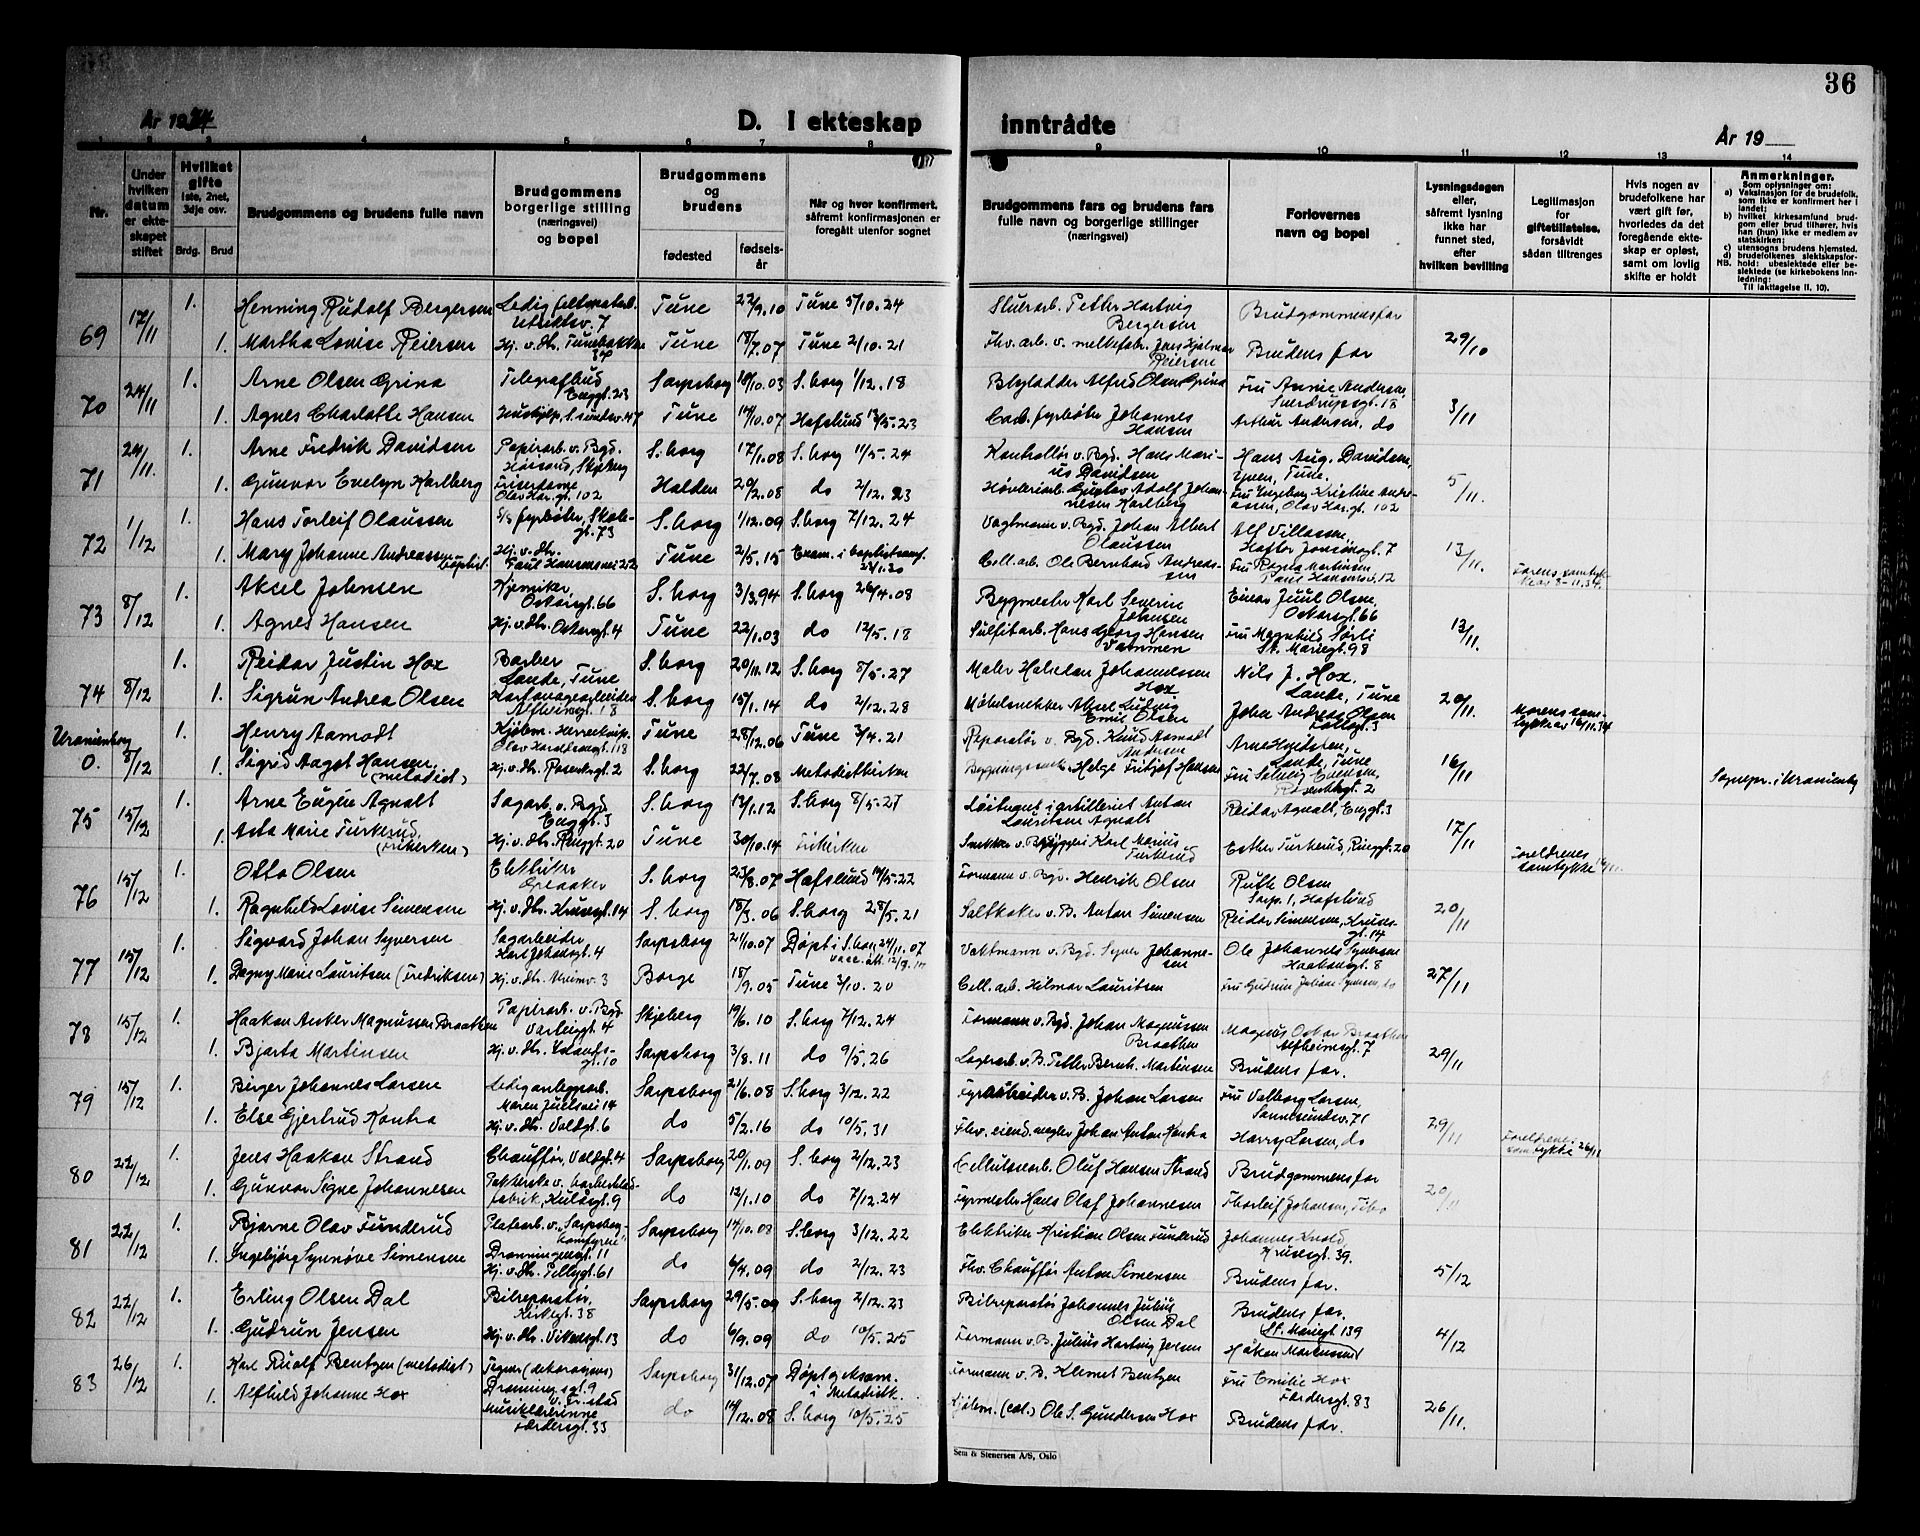 36
År 1934
D. I ekteskap inntrådte
År 19
1 2 3 4 5 6 7 8 9 10 11 12 13 14
Nr.
Under hvilken datum er ekteskapet stiftet
Hvilket gifte 1ste, 2net, 3dje osv.
Brdg. Brud
Brudgommens og brudens fulle navn
Brudgommens borgerlige stilling (næringsvei) og bopel
Brudgommens og brudens
fødested
fødselsår
Når og hvor konfirmert, såfremt konfirmasjonen er foregått utenfor sognet
Brudgommens fars og brudens fars fulle navn og borgerlige stillinger (næringsvei)
Forlovernes navn og bopel
Lysningsdagen eller, såfremt lysning ikke har funnet sted, efter hvilken bevilling
Legitimasjon for giftetillatelse, forsåvidt sådan tiltrenges
Hvis nogen av brudefolkene har vært gift før, hvorledes da det foregående ekteskap er opløst, samt om lovlig skifte er holdt
Anmerkninger.
Som oplysninger om:
a) Vaksinasjon for de brudefolk, som ikke er konfirmert her i landet;
b) hvilket kirkesamfund brudgom eller brud tilhører, hvis han (hun) ikke er medlem av statskirken;
c) utensogns brudens hjemsted.
d) brudefolkenes slektskapsforhold: ubeslektede eller beslektede (se kirkebokens innledning:
NB. Til iakttagelse II. 10).
69 17/11 1. Henning Rudolf Bergersen Tune 22/9.10 Tune 5/10.24 Petter Hartvig Bergersen Brudgommens far
1. Martha Lovise Reiersen Hj. v. Dr. Tunebakken Tune 18/7.07 Tune 2/10.21 Fhv. arb. v. melkefabr. Jens Hjalmar Reiersen Brudens far 29/10
70 24/11 1. Arne Olsen Grina Telegrafbud Enggt. 23 Sarpsborg 18/10.03 S.borg 1/12.18 Alfred Olsen Grina Fru Annie Andersen, Sverdrupsgt. 18
1. Agnes Charlotte Hansen Tune 14/10.07 Hafslund 13/5.23 Johannes Hansen Arthur Andersen, do 3/11
71 24/11. 1. Arne Fredrik Davidsen Papirarb. v. Bgd. S.borg 17/1.08 S.borg 11/5.24 Kontrollør v. Bgd. Hans Marius Davidsen Hans Aug. Davidsen, Tune.
1. Gunvor Evelyn Karlberg Friserdame Olav Har.gt. 102 Halden 29/2.08 do 2/12.23 Gustav Adolf Johannesen Karlberg Fru Ingeborg Kristine Andreassen, Olav Har.gt. 102 5/11.
72 1/12 1. Hans Torleif Olaussen 73 S.borg 1/12.09 S.borg 7/12.24 Vagtmann v. Bgd. Johan Albert Olaussen Alf Villassen, Haftor Jonsønsgt. 7
1. Mary Johanne Andreassen (Baptist) Hj. v. Dr. Paul Hansensvei 22 Tune 2/5.15 Exam. i baptistsamf. Cell. arb. Ole Bernhard Andreassen Fru Regna Martinsen Paul Hansensv. 12 13/11.
73 8/12 1. Aksel Johnsen Kjemiker, Oskarsgt. 66 S.borg 3/3.94 S.borg 26/4.08 Bygmester Karl Severin Johnsen Einar Juul Olsen, Oskarsgt. 66
1. Agnes Hansen Hj. v. Dr. Oskarsgt. 4 Tune 22/1.03 do 12/5.18 Sulfitarb. Hans Georg Hansen Fru Magnhild Sørli St. Mariegt. 98 13/11.
74 8/12 1. Reidar Justin Hox Barber Lande, Tune S.borg 20/11.12 S.borg 8/5.27 Maler Halvdan Johannessen Hox Nils J. Hox, Lande, Tune
1. Sigrun Andrea Olsen Kartonagearbeider Alfheimgt. 18 S.borg 15/1.14 do 2/12.28 Møbelsnekker Aksel Ludvig Emil Olsen John Andreas Olsen 20/11. Morens samtykke av 16/11.34
Uranienborg
0. 8/12 1. Henry Aamodt Olav Haraldsensgt. 118 Tune 28/12.06 Tune 3/4.21 Reparatør v. Bgd. Knud Aamodt Andersen Lande, Tune
1. Sigrid Aagot Hansen (metodist) Hj. v. Dr. Rosenkr.gt. 2 S.borg 22/7.08 Metodistkirken Helge Fritjof Hansen Fru Solveig Evensen, 16/11 Sognepr. i Uranienbg
75 15/12 1. Arne Eugen Agnalt Sagarb. v. Bgd Enggt. 3 S.borg 13/1.12 S.borg 8/5.27 Løitnant i artilleriet Anton Lauritsen Agnalt Reidar Agnalt, Enggt. 3
1. Asta Marie Turkerud (Frikirken) Hj. v. Dr. Ringgt. 20 Tune 30/10.14 Frikirken Karl Marius Turkerud Esther Turkerud, Ringgt. 20 17/11 Foreldrenes samtykke 16/11.
76 15/12 1. Otto Olsen Elektriker Greaaker S.borg 23/8.07 Hafslund 14/5.22 Formann v. Bgd. Hedrik Olsen Ruth Olsen Sarp. 1, Hafslund
1. Ragnhild Lovise Simensen Hj. v. Dr. Krusegt. 14 S.borg 18/3.06 S.borg 28/5.21 Saltkoker v. B. Anton Simensen Reidar Simensen, Krusesgt. 14 20/11
77 15/12 1. Sigvard Johan Syversen Sagarbeider Karl Johansgt. 4 Sarpsborg 21/10.07 Døpt i S.borg 24/11.07 Vaktmann v. Bgd. Syver Johannesen Ole Johannes Syversen Haakonsgt. 8
1. Dagny Marie Lauritsen (Fredriksen) Hj. v. Dr. 3 Borge 18/9.05 Tune 3/10.20 Cell. arb. Hilmar Lauritsen Fru Gudrun Johanne Syversen, do 27/11
78 15/12 1. Haakon Anker Magnussen Braathen Papirarb. v. Bgd. Varteiggt. 4 Skjeberg 19/6.10 S.borg 7/12.24 Formann v. Bgd. Johan Magnussen Braathen Magnus Oskar Braathen Alfheimsgt. 7
1. Bjarta Martinsen Hj. v. Dr. 10 Sarpsborg 3/8.11 do 9/5.26 Lagerarb. v. B. Petter Bernh. Martinsen Brudens far. 29/11
79 15/12 1. Birger Johannes Larsen Ledig anleggsarb. Maren Juelsvei 14 Sarpsborg 21/6.08 S.borg 3/12.22 Fyrarbeider v. B. Johan Larsen Fru Valborg Larsen, Sannesundsv. 71
1. Else Gjertrud Kontra Hj. v. Dr. Voldgt. 6 do 5/2.16 do 10/5.31 Fhv. eiend. megler Johan Anton Kontra Harry Larsen, do 29/11 Foreldrenes samtykke 26/11
80 22/12 1. Jens Haakon Strand Chauffør, Voldgt. 4 Sarpsborg 20/1.09 S.borg 2/12.23 Cellulosearb. Oluf Hansen Strand Brudgommens far
1. Gunvor Signe Johannesen Pakkerske v. barberbladfabrik, Kuldsgt. 9 do 12/1.10 do 7/12.24 Fyrmester Hans Olaf Johannesen Thorleif Johansen, 20/11
81 22/12 1. Bjarne Olav Funderud Platearb. v. "Sarpsborgkomfyrene" Dronningensgt. 11 Sarpsborg 14/10.08 S.borg 3/12.22 Elektriker Kristian Olsen Funderud Johannes Knold, Krusesgt. 39.
1. Ingebjørg Synnøve Simensen Hj. v. Dr. Pellygt. 61 do 6/4.09 do 2/12.23 Fhv. Chauffør Anton Simensen Brudens far. 5/12
82 22/12 1. Erling Olsen Dal Bilreparatør, Kirkegt. 38 Sarpsborg 29/5.09 S.borg 2/12.23 Bilreparatør Johannes Julius Olsen Dal Brudens far. St. Mariegt 139
1. Gudrun Jensen Hj. v. Dr. Vikensgt. 13 do 6/9.09 do 10/5.25 Formann v. B. Julius Hartvig Jensen Håkon Martinsen 4/12
83 26/12 1. Karl Rudolf Bentzen (metodist) Tegner (dekorasjons) Dronningsgt. 9 Sarpsborg 31/12.07 Døpt og eksam. i Metodistk. Formann v. B. Klemet Bentzen Fru Emilie Hox Færdersgt. 83
1. Alfhild Johanne Hox Musiklærerinne Færdersgt. 33 do 14/12.08 S.borg 10/5.25 Ole S. Gundersen Hox Brudens far. 26/11.
Sem & Stenersen A/S, Oslo